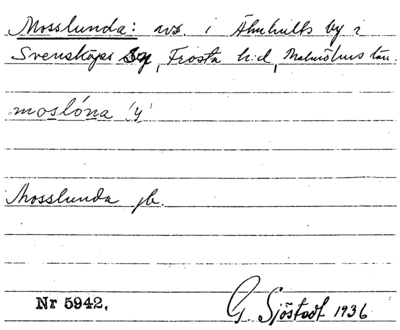 Mosslunda: avs. i Åkhults by i
Svensköps sn, Frosta h:d, Malmöhus län.
moslóna
Mosslunda jb.
Nr 5942. G Sjöstedt 1936